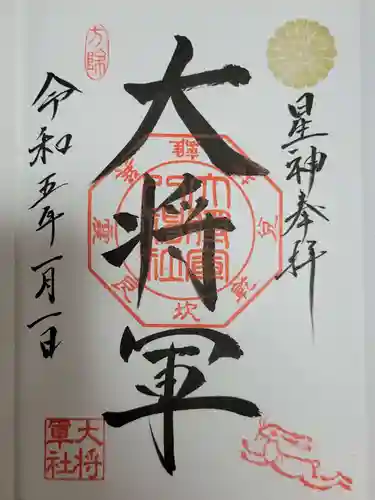 星神奉拝
大将軍
令和五年一月一日
方除
大将
軍社